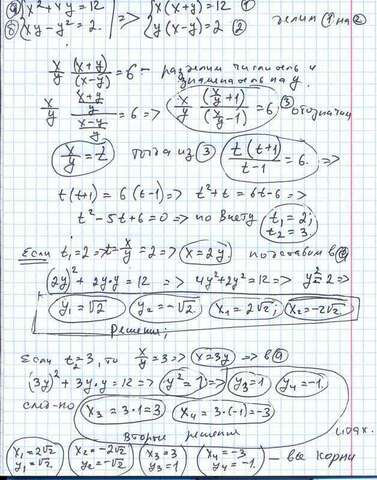 а) { x² + xy = 12
б) { xy - y² = 2. => { x(x+y) = 12 ①
{ y(x-y) = 2 ② делим ① на ②
x/y (x+y)/(x-y) = 6 - разделим числитель и знаменатель на y.
x/y ((x+y)/y)/((x-y)/y) = 6 => x/y (x/y + 1)/(x/y - 1) = 6 ③ обозначим
x/y = t тогда из ③ t(t+1)/(t-1) = 6. =>
t(t+1) = 6(t-1) => t² + t = 6t - 6 =>
t² - 5t + 6 = 0 => по Виету t₁ = 2; t₂ = 3.
Если t₁ = 2 => t = x/y = 2 => x = 2y подставим в
(2y)² + 2y·y = 12 => 4y² + 2y² = 12 => y² = 2 =>
y₁ = √2 y₂ = -√2 x₁ = 2√2; x₂ = -2√2
Решение;
Если t₂ = 3, то x/y = 3 => x = 3y => в а
(3y)² + 3y·y = 12 => y² = 1 => y₃ = 1 y₄ = -1.
след-но x₃ = 3·1 = 3 x₄ = 3·(-1) = -3
Второе решение
(x₁ = 2√2 y₁ = √2) (x₂ = -2√2 y₂ = -√2) (x₃ = 3 y₃ = 1) (x₄ = -3 y₄ = -1) - все корни